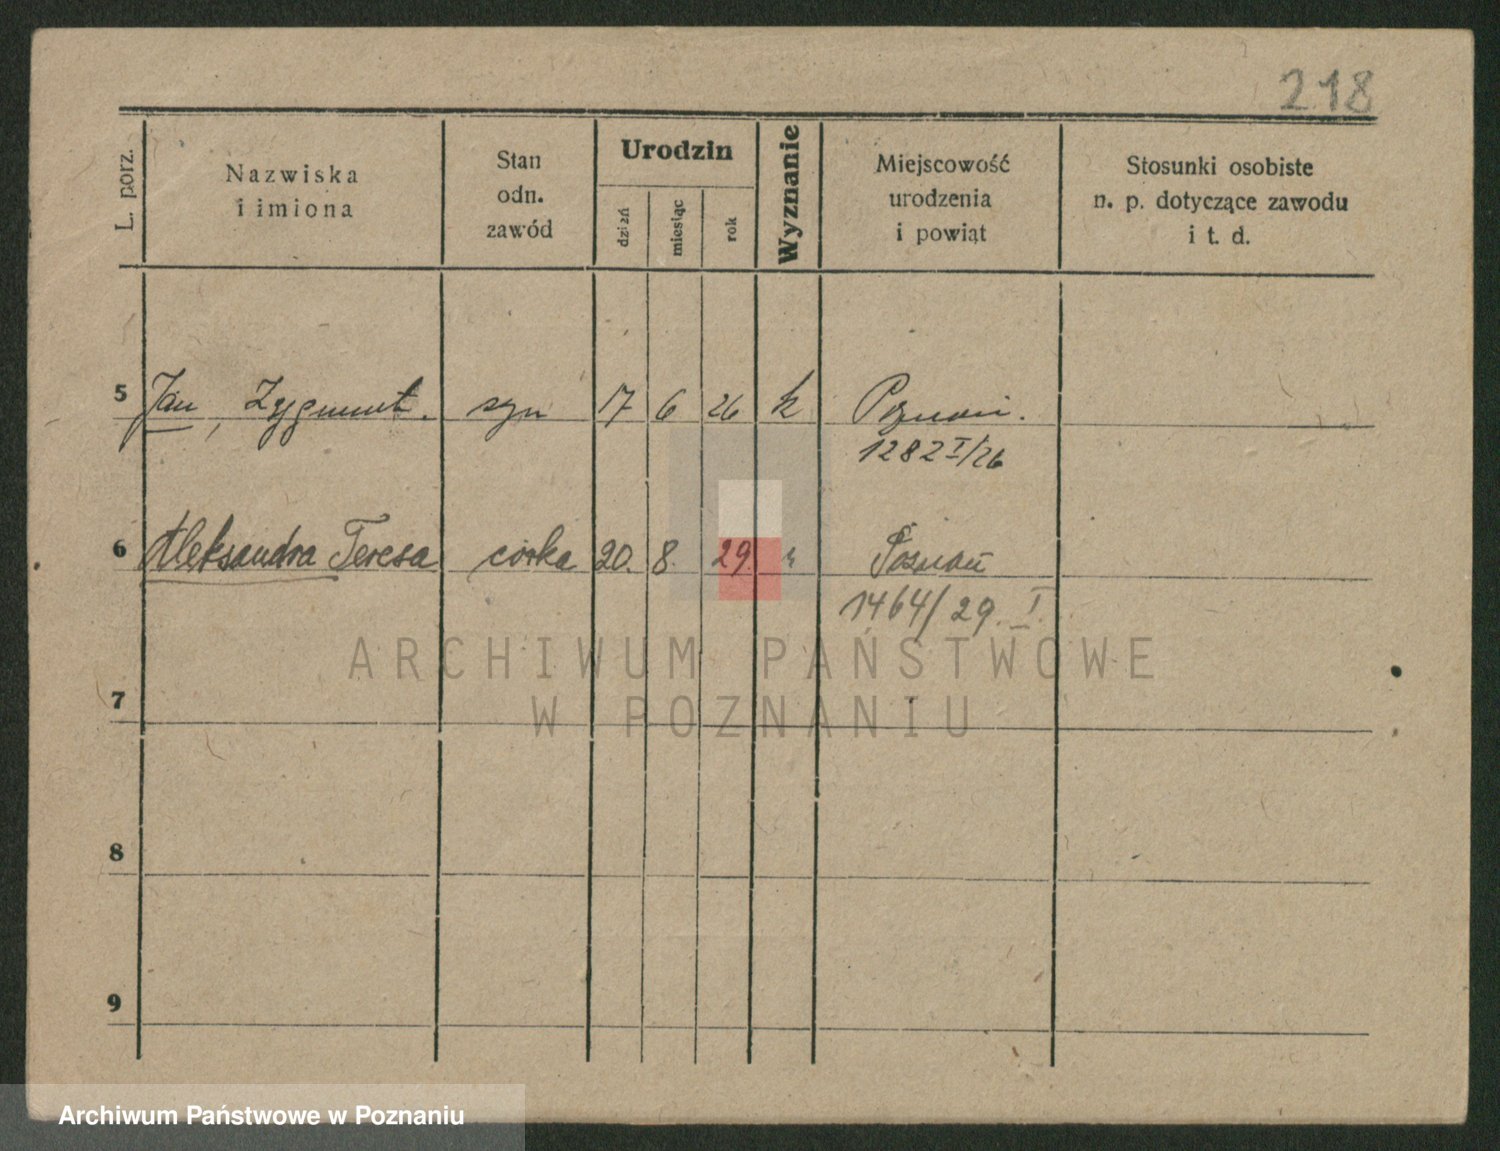 218
L. porz.
Nazwiska
i imiona
Stan
odn.
zawód
Urodzin
dzień
miesiąc
rok
Wyznanie
Miejscowość
urodzenia
i powiąt
Stosunki osobiste
n. p. dotyczące zawodu
i t. d.
5 Jan, Zygmunt. syn 17 6 26 k Poznań.
1282 I/26
6 Aleksandra Teresa córka 20. 8. 29. Poznań
1464/29. I.
ARCHIWUM PAŃSTWOWE
W POZNANIU
7
8
9
Archiwum Państwowe w Poznaniu